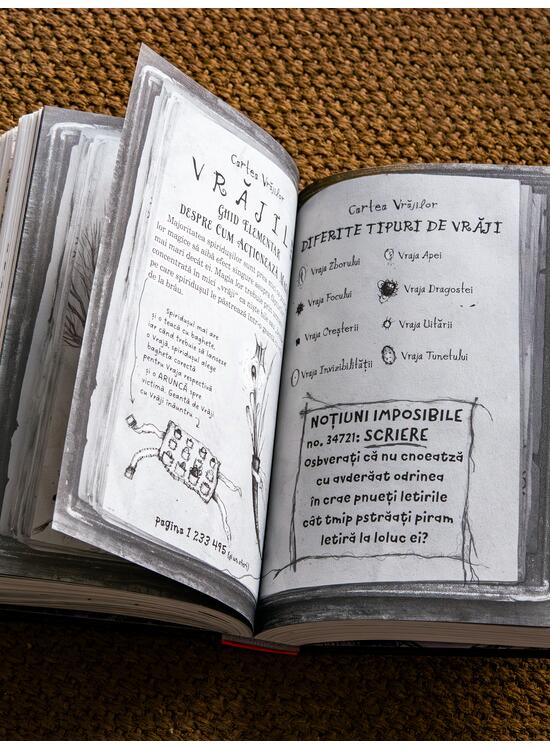 Cartea Vrăjilor
VRĂJIL
GHID ELEMENTAR
DESPRE CUM ACȚIONEAZĂ
Majoritatea spiridușilor sunt prea mici
lor magice să aibă efect singure asupra
mai mari decât ei. Magia lor trebuie
concentrată în mici „vrăji" ca niște
pe care spiridușul le păstrează într-o
de la brâu.
Spiridușul mai are
și o teacă cu baghete,
iar când trebuie să lanseze
o vrajă, spiridușul alege
bagheta corectă
pentru vraja respectivă
și o ARUNCĂ spre
victimă. Geantă de Vrăji
cu Vrăji înăuntru
pagina 1 233 495
Cartea Vrăjilor
DIFERITE TIPURI DE VRĂJI
Vraja Zborului
Vraja Focului
Vraja Creșterii
Vraja Invizibilității
Vraja Apei
Vraja Dragostei
Vraja Uitării
Vraja Tunetului
NOȚIUNI IMPOSIBILE
no. 34721: SCRIERE
Osbverați că nu cnoeatză
cu avderăat odrinea
în crae pnueți letirile
cât tmip pstrăați piram
letiră la loluc ei?